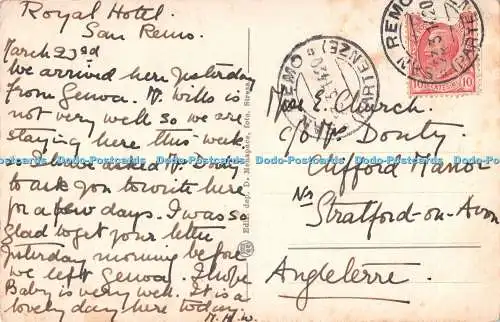 Royal Hotel.
San Remo.
March 23rd
We arrived here yesterday
from Genoa. Mr. Wills is
not very well so we are
staying here this week.
I have asked Mr. Douty
to ask you to write here
for a few days. I was so
glad to get your letter
yesterday morning before
we left Genoa. I hope
Baby is very well. It is a
lovely day here today.
M. H. W.
SAN REMO
(PARTENZE)
SAN REMO
(PARTENZE)
10 10
Miss E. Church.
c/o Mrs Douty
Clifford Manor
Nr
Stratford-on-Avon
Angleterre.
www.Postcards www.Postcards www.Postcards www.Postcards